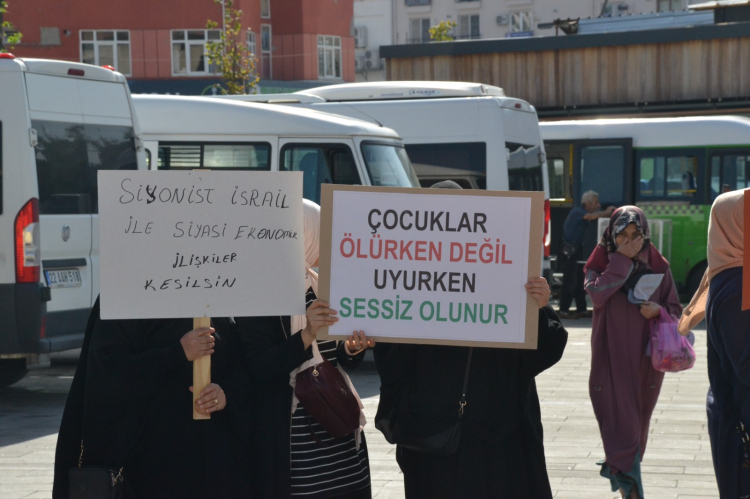 SiYONiST İSRAİL
İLE SİYASİ EKONOMİK
İLİŞKİLER
KESİLSİN
ÇOCUKLAR
ÖLÜRKEN DEĞİL
UYURKEN
SESSİZ OLUNUR